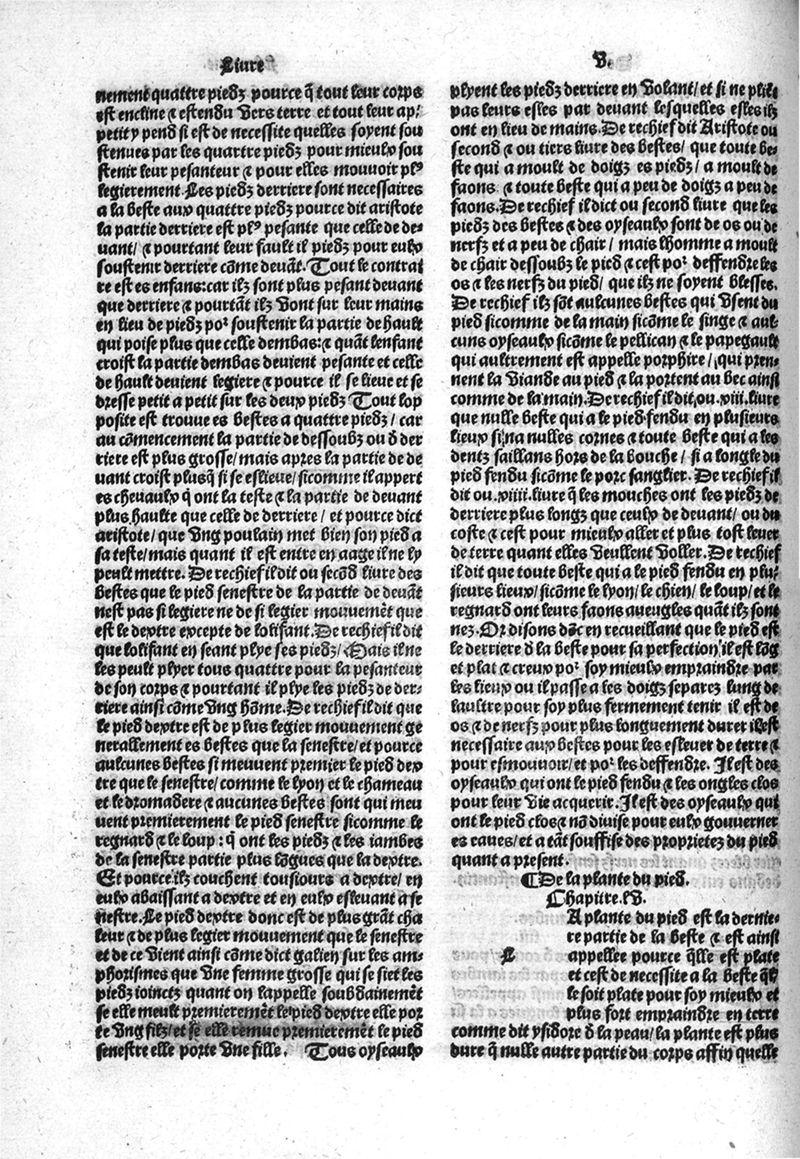 Liure
V.
nement quattre piedz pource q̃ tout leur corps
est encline ⁊ estendu vers terre et tout leur ap/
petit y pend si est de necessite quelles soyent sou
stenues par les quartre piedz pour mieulx sou
stenir leur pesanteur ⁊ pour elles mouuoir plꝰ
legierement. Les piedz derriere sont necessaires
a la beste aux quattre piedz pource dit aristote
la partie derriere est plꝰ pesante que celle de de-
uant/ ⁊ pourtant leur fault il piedz pour eulx
soustenir derriere cõme deuãt. Tout le contrai
re est es enfans: car ilz sont plus pesant deuant
que derriere ⁊ pourtãt ilz vont sur leur mains
en lieu de piedz poꝛ soustenir la partie de hault
qui poise plus que celle dembas: ⁊ quãt lenfant
croist la partie dembas deuient pesante et celle
de hault deuient legiere ⁊ pource il se lieue et se
dresse petit a petit sur les deux piedz Tout lop
posite est trouue es bestes a quattre piedz/ car
au cõmencement la partie de dessoubz ou d̃ der
riere est plus grosse/ mais apres la partie de de
uant croist plusq̃ si se eslieue/ sicomme il appert
es cheuaulx q̃ ont la teste ⁊ la partie de deuant
plus haulte que celle de derriere/ et pource dict
aristote/ que vng poulain met bien son pied a
sa teste/ mais quant il est entre en aage il ne ly
peult mettre. De rechief il dit ou secõd liure des
bestes que le pied senestre de la partie de deuãt
nest pas si legiere ne de si legier mouuemẽt que
est le dextre excepte de lolifant. De rechief il dit
que lolifant en seant plye ses piedz/ Mais il ne
les peult plyer tous quattre pour la pesanteur
de son corps ⁊ pourtant il plye les piedz de der-
riere ainsi cõme vng hõme. De rechief il dit que
le pied dextre est de plus legier mouuement ge
nerallement es bestes que la senestre/ et pource
aulcunes bestes si meuuent premier le pied dex
tre que le senestre/ comme le lyon et le chameau
et le dromadere ⁊ aucunes bestes sont qui meu
uent premierement le pied senestre sicomme le
regnard ⁊ le loup: q̃ ont les piedz ⁊ les iambes
de la senestre partie plus lõgues que la dextre.
Et pource ilz couchent tousiours a dextre/ en
eulx abaissant a dextre et en eulx esleuant a se
nestre. Le pied dextre donc est de plus grãt cha
leur ⁊ de plus legier mouuement que le senestre
et de ce vient ainsi cõme dict galien sur les am-
phorismes que vne femme grosse qui se siet les
piedz ioinctz quant on lappelle soubdainemẽt
se elle meult premieremẽt le pied dextre elle por
te vng filz/ et se elle remue premieremẽt le pied
senestre elle porte vne fille. Tous oyseaulx
plyent les piedz derriere en volant/ et si ne plient
pas leurs esles par deuant lesquelles esles ilz
ont en lieu de mains. De rechief dit Aristote ou
second ⁊ ou tiers liure des bestes/ que toute be-
ste qui a moult de doigz es piedz/ a moult de
faons ⁊ toute beste qui a peu de doigz a peu de
faons. De rechief il dict ou second liure que les
piedz des bestes ⁊ des oyseaulx sont de os ou de
nerfz et a peu de chair/ mais lhomme a moult
de chair dessoubz le pied ⁊ cest poꝛ deffendre les
os ⁊ les nerfz du pied/ que ilz ne soyent blesses.
De rechief ilz sõt aulcunes bestes qui vsent du
pied sicomme de la main sicõme le singe ⁊ aul-
cuns oyseaulx sicõme le pellican ⁊ le papegault
qui aultrement est appelle porphire/ qui pren-
nent la viande au pied ⁊ la portent au bec ainsi
comme de la main. De rechief il dit/ ou .viii. liure
que nulle beste qui a le pied fendu en plusieurs
lieux si na nulles cornes ⁊ toute beste qui a les
dentz saillans hors de la bouche/ si a longle du
pied fendu sicõme le porc sanglier. De rechief il
dit ou .viiii. liure q̃ les mouches ont les piedz de
derriere plus longz que ceulx de deuant/ ou du
coste ⁊ cest pour mieulx aller et plus tost leuer
de terre quant elles veullent voller. De rechief
il dit que toute beste qui a le pied fendu en plu-
sieurs lieux/ sicõme le lyon/ le chien/ le loup/ et le
regnard ont leurs faons aueugles quãt ilz sont
nez. Or disons dõc en recueillant que le pied est
le derriere d̃ la beste pour sa perfection/ il est lõg
et plat ⁊ creux poꝛ soy mieulx empraindre par
les lieux ou il passe a les doigz separez lung de
laultre pour soy plus fermement tenir il est de
os ⁊ de nerfz pour plus longuement durer il est
necessaire aux bestes pour les esleuer de terre ⁊
pour esmouuoir/ et poꝛ les deffendre. Il est des
oyseaulx qui ont le pied fendu ⁊ les ongles clos
pour leur vie acquerir. Il est des oyseaulx qui
ont le pied clos ⁊ nõ diuise pour eulx gouuerner
es eaues/ et a tãt souffise des proprietez du pied
quant a present.
¶ De la plante du pied.
Chapitre. lv.
A plante du pied est la dernie-
re partie de la beste ⁊ est ainsi
L appellee pource q̃lle est plate
et cest de necessite a la beste q̃l
le soit plate pour soy mieulx et
plus fort empraindre en terre
comme dit ysidore d̃ la peau/ la plante est plus
dure q̃ nulle autre partie du corps affin quelle